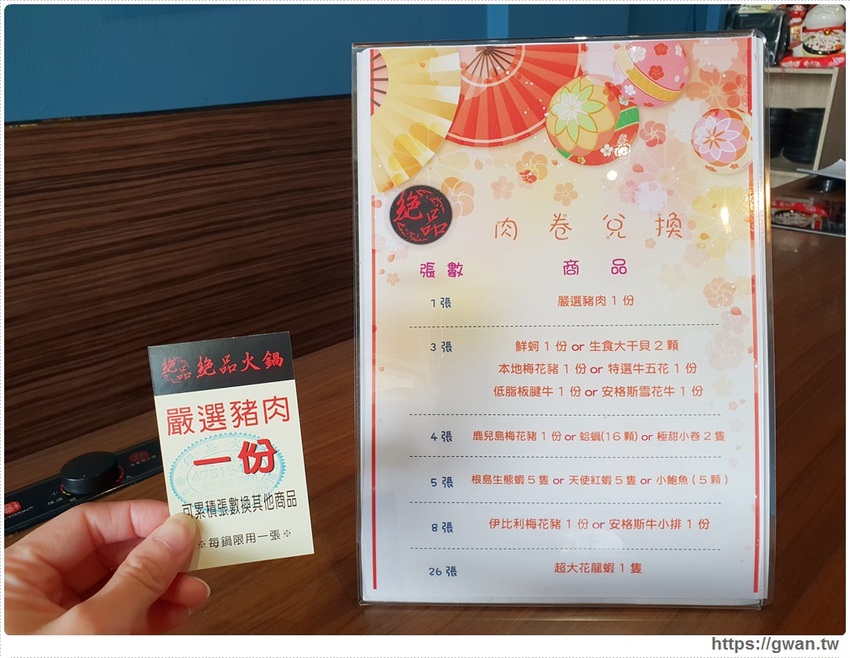 絕品
肉卷兌換
張數 商品
1張 嚴選豬肉1份
3張 鮮蚵1份or生食大干貝2顆
本地梅花豬1份or特選牛五花1份
低脂板腱牛1份or安格斯雪花牛1份
4張 鹿兒島梅花豬1份or蛤蠣(16顆)or極甜小卷2隻
5張 根島生態蝦5隻or天使紅蝦5隻or小鮑魚(5顆)
8張 伊比利梅花豬1份or安格斯牛小排1份
26張 超大花龍蝦1隻
絕品 絕品火鍋
嚴選豬肉
一份
可累積張數換其他商品
※每鍋限用一張※
https://gwan.tw